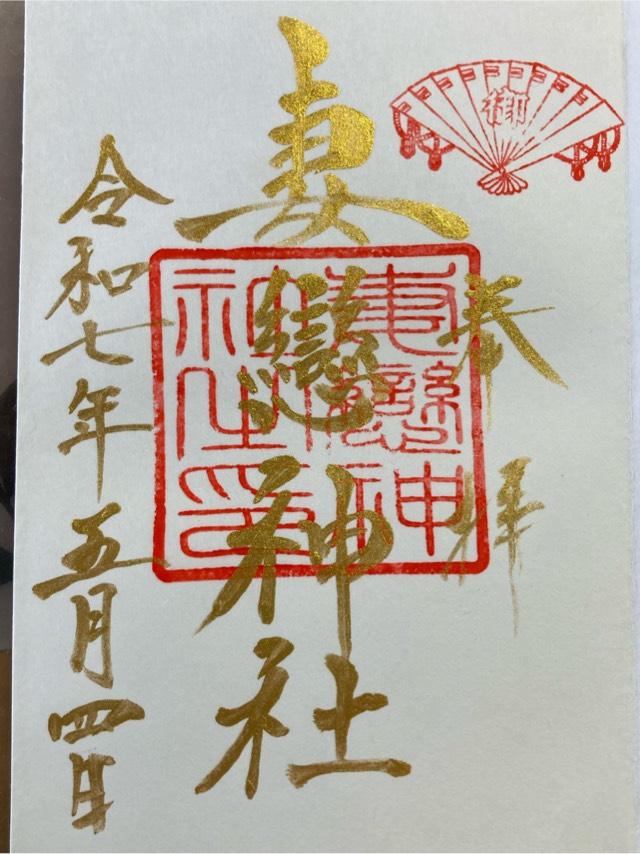 奉拝
妻戀神社
妻戀神
社之印
令和七年五月四日